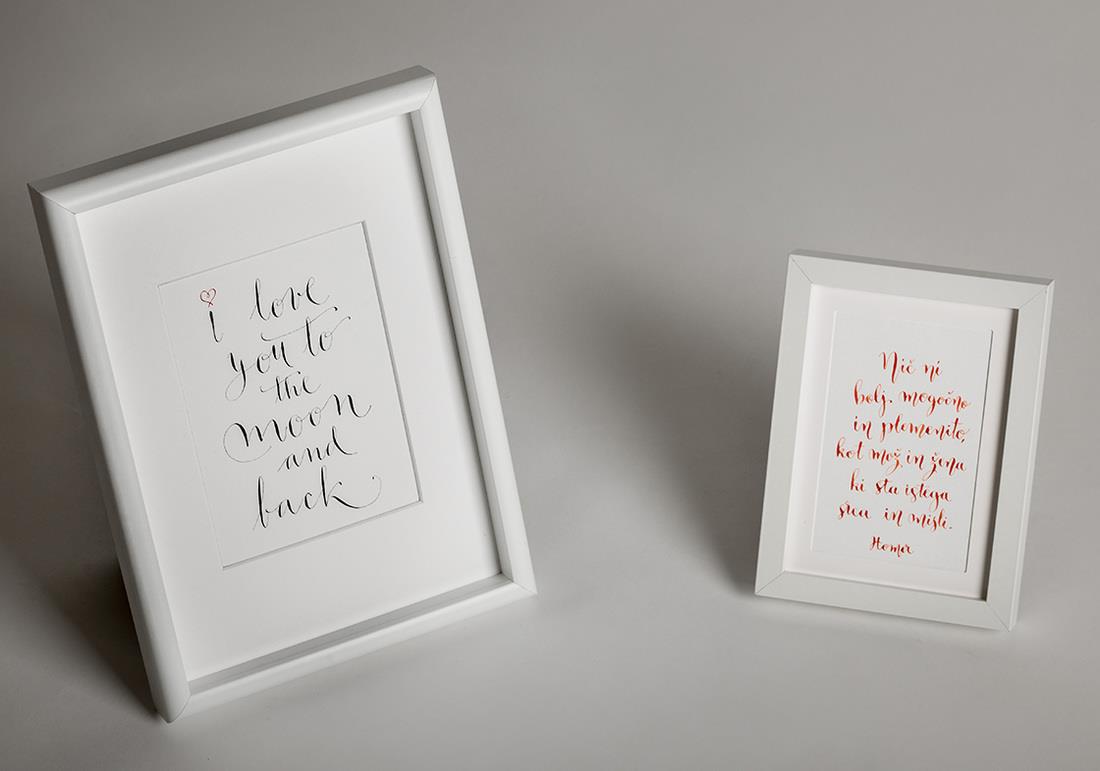 i love
you to
the
moon
and
back
Nič ni
bolj mogočno
in plemenito,
kot mož in žena
ki sta istega
srca in misli.
Homer